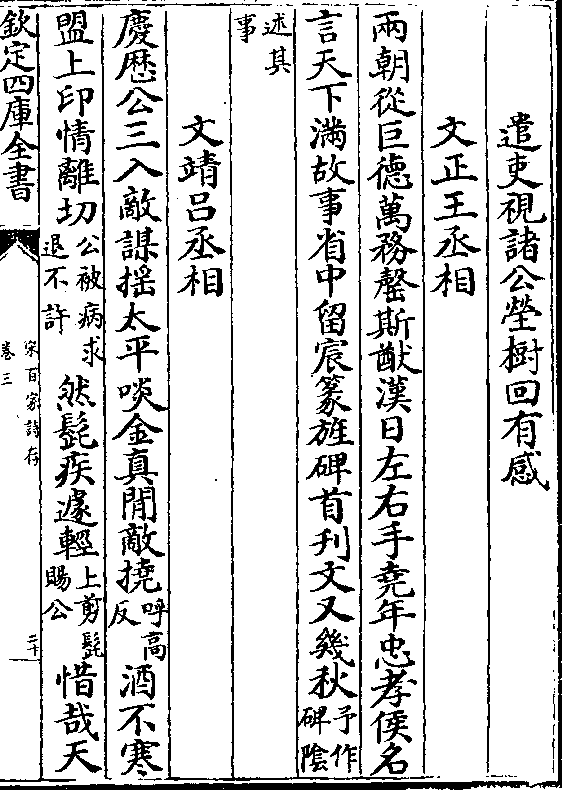 遣吏視諸公塋樹回有感
文正王丞相
兩朝從巨德萬務罄斯猷漢日左右手堯年忠孝侯名
言天下滿故事省中留宸篆旌碑首刊文又幾秋予作碑陰
述其事
文靖呂丞相
慶歷公三入敵謀揺太平啖金真閒敵撓呼高反酒不寒
盟上印情離切公被病求退不許然髭疾遽輕上剪髭賜公惜哉天
欽定四庫全書
宋百家詩存
卷三
二十